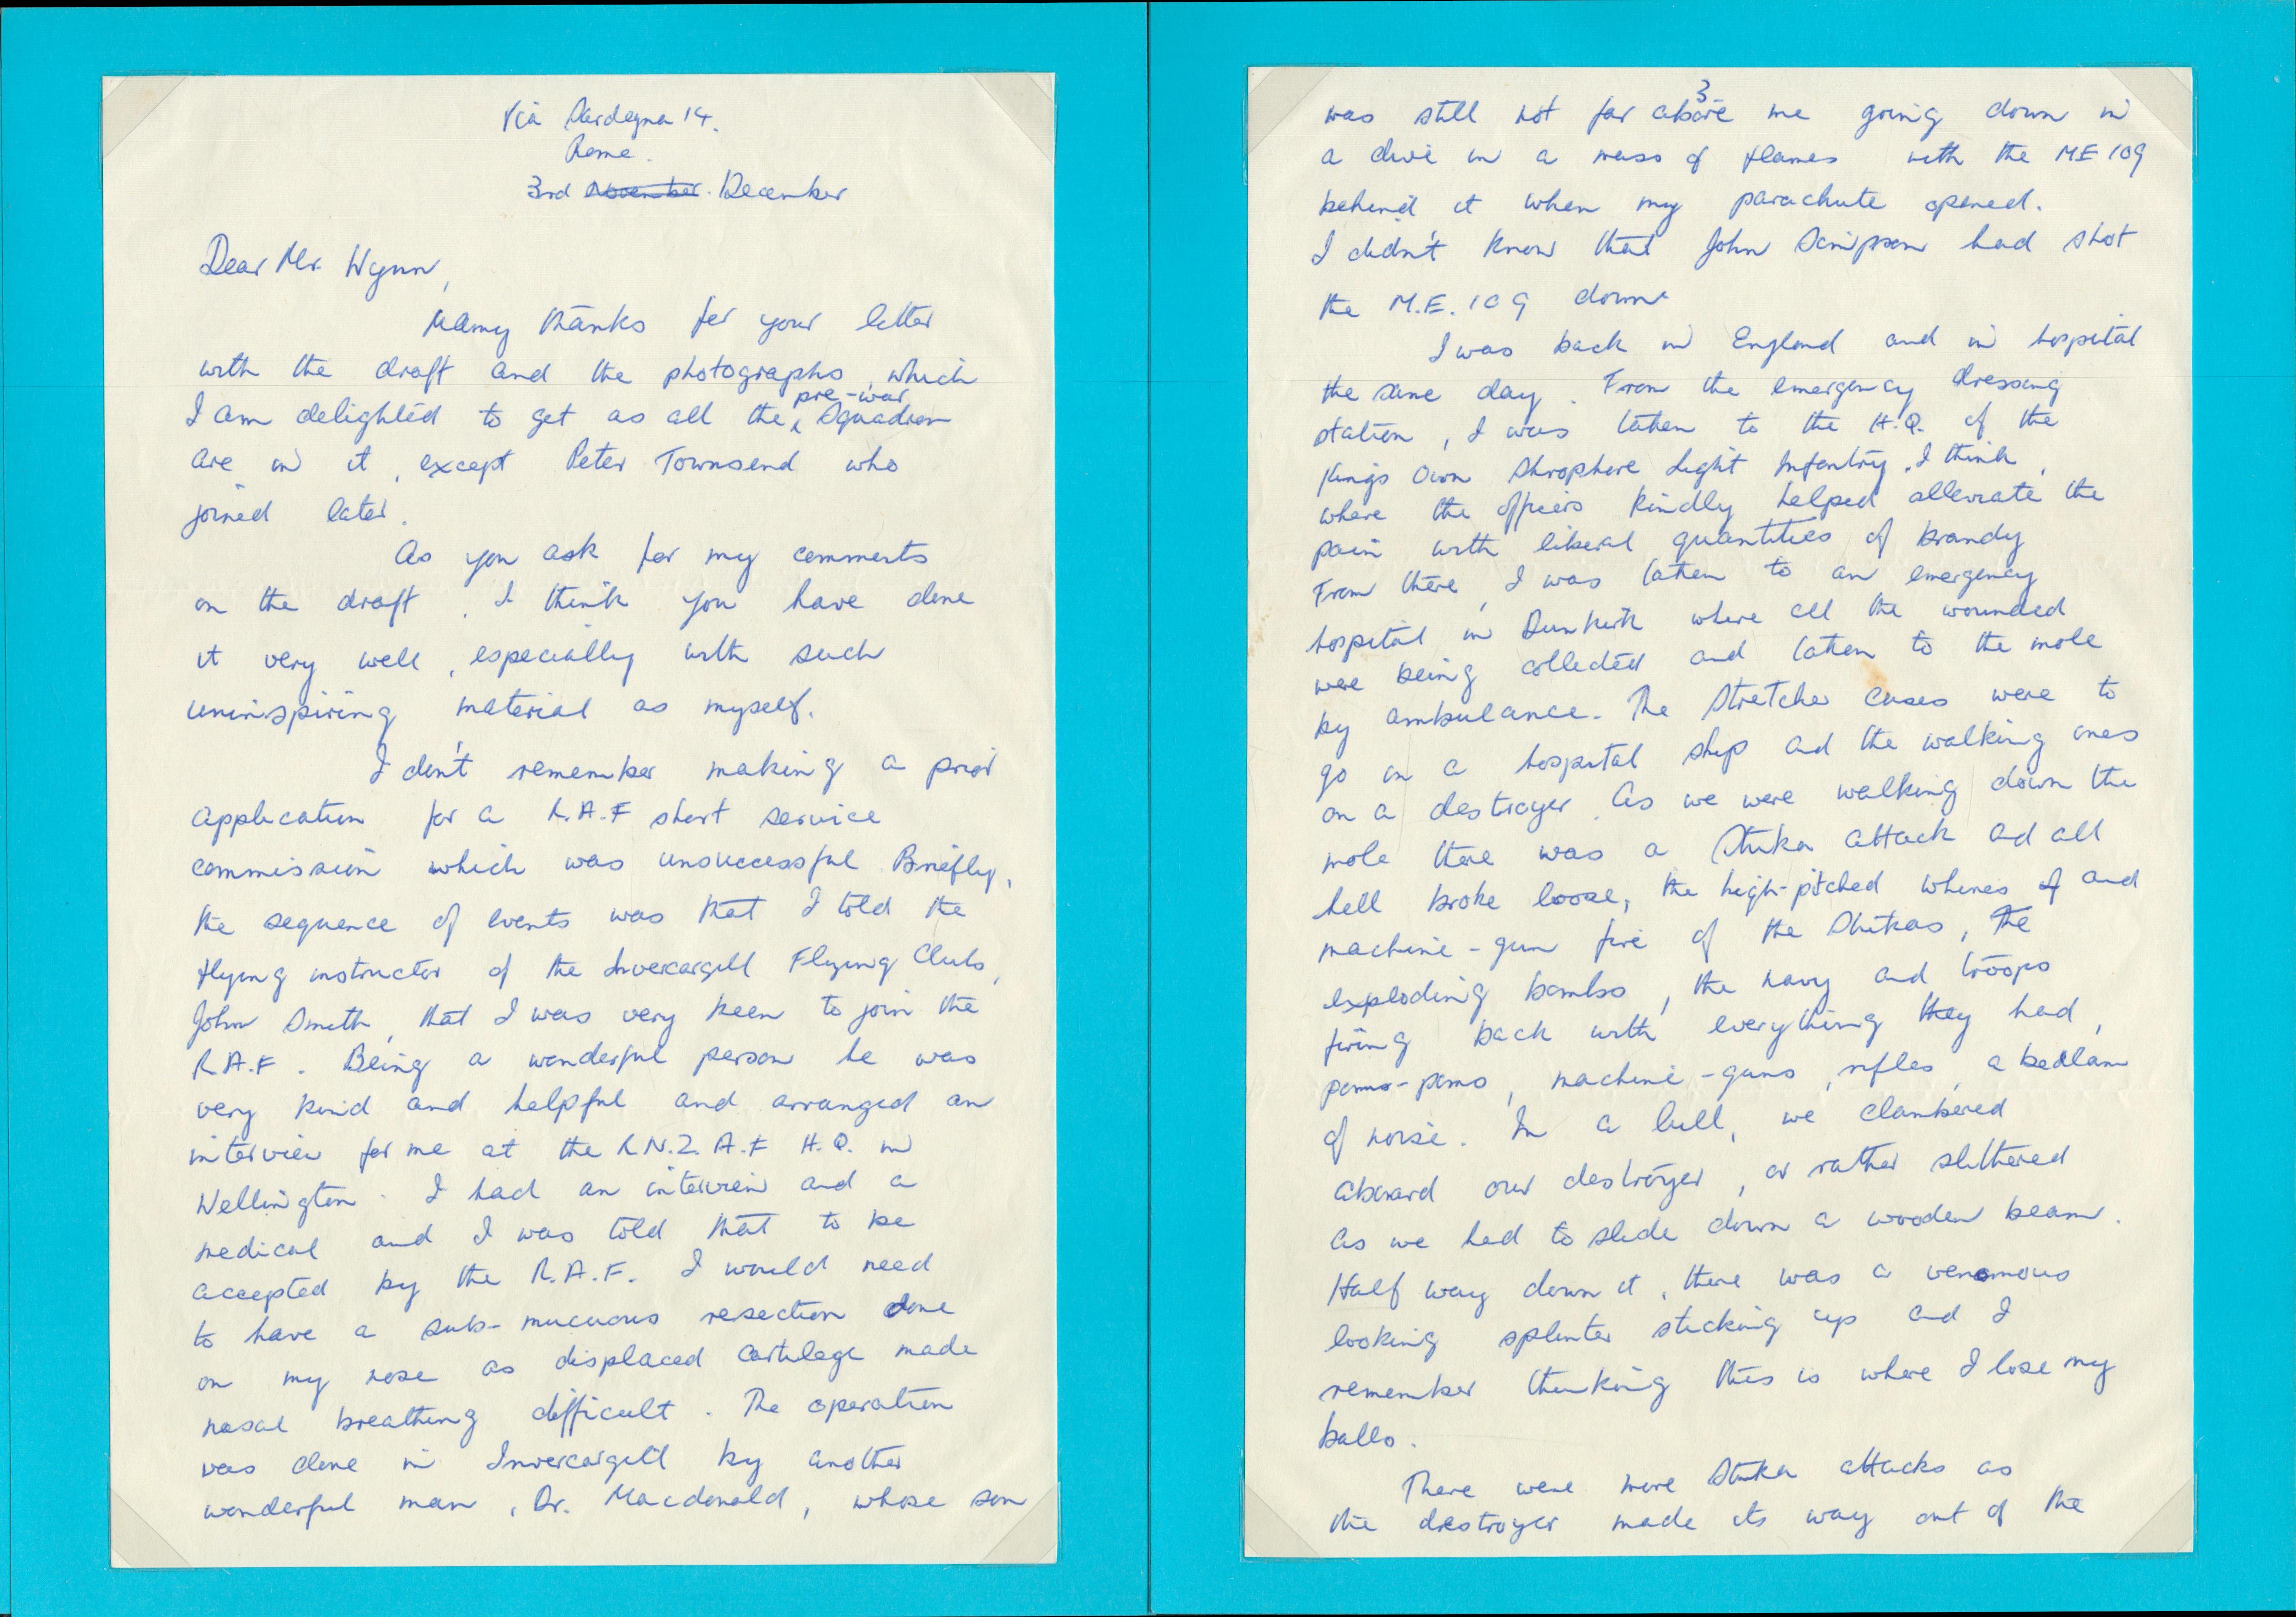 Via Sardegna 14.
Rome.
3rd November. December
Dear Mr. Wynn,
Many thanks for your letter
with the draft and the photographs, which
I am delighted to get as all the pre-war Squadron
are in it, except Peter Townsend who
joined later.
As you ask for my comments
on the draft, I think you have done
it very well, especially with such
uninspiring material as myself.
I don't remember making a prior
application for a R.A.F short service
commission which was unsuccessful Briefly,
the sequence of events was that I told the
flying instructor of the Invercargill Flying Club,
John Smith, that I was very keen to join the
R.A.F. Being a wonderful person he was
very kind and helpful and arranged an
interview for me at the R.N.Z.A.F H.Q. in
Wellington. I had an interview and a
medical and I was told that to be
accepted by the R.A.F. I would need
to have a sub-mucuous resection done
on my nose as displaced cartilage made
nasal breathing difficult. The operation
was done in Invercargill by another
wonderful man, Dr. Macdonald, whose son
3
was still not far above me going down in
a dive in a mass of flames with the M.E 109
behind it when my parachute opened.
I didn't know that John Simpson had shot
the M.E. 109 down.
I was back in England and in hospital
the same day. From the emergency dressing
station, I was taken to the H.Q. of the
Kings Own Shropshire Light Infantry, I think,
where the officers kindly helped alleviate the
pain with liberal quantities of brandy
From there, I was taken to an emergency
hospital in Dunkirk where all the wounded
were being collected and taken to the mole
by ambulance. The stretcher cases were to
go on a hospital ship and the walking ones
on a destroyer. As we were walking down the
mole there was a Stuka attack ad all
hell broke loose, the high-pitched whines of and
machine-gun fire of the Stukas, the
exploding bombs, the navy and troops
firing back with everything they had,
poms-poms, machine-guns, rifles, a bedlam
of noise. In a lull, we clambered
aboard our destroyer, or rather slithered
as we had to slide down a wooden beam.
Half way down it, there was a venomous
looking splinter sticking up and I
remember thinking this is where I lose my
balls.
There were more Stuka attacks as
the destroyer made its way out of the